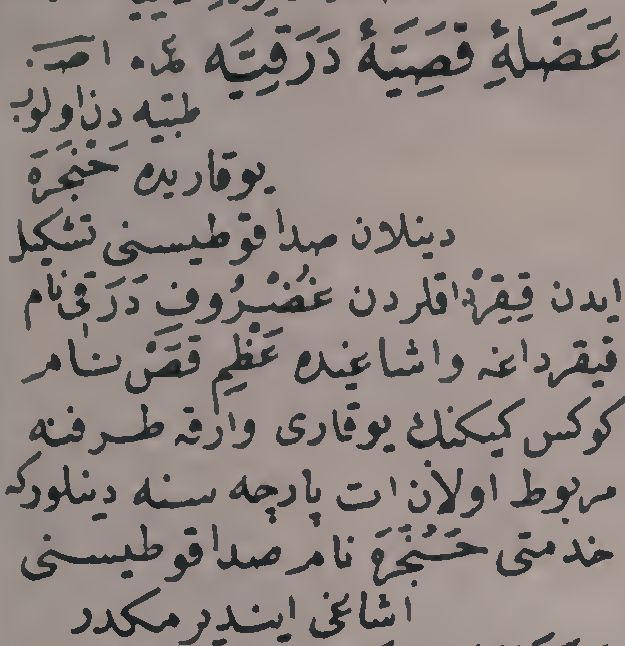 عَضَلَهٔ قَصِّیَهٔ دَرَقِیَّه عر. اصـ.
طبیه دن اولوب
یوقاریده حَنْجَرَه
دینلان صدا قوطیسنی تشکیل
ایدن قیقرداقلردن غُضْرُوف دَرَقی نام
قیقرداغه واشاغیده عَظْمِ قَصّ نـام
کوکس کیکنك یوقاری وارقه طـرفنه
مربوط اولان ات پارچه سـنه دینلورکه
خدمتی حَـنْجَرَه نام صدا قوطیسـنی
اشاغی ایندیرمکدر